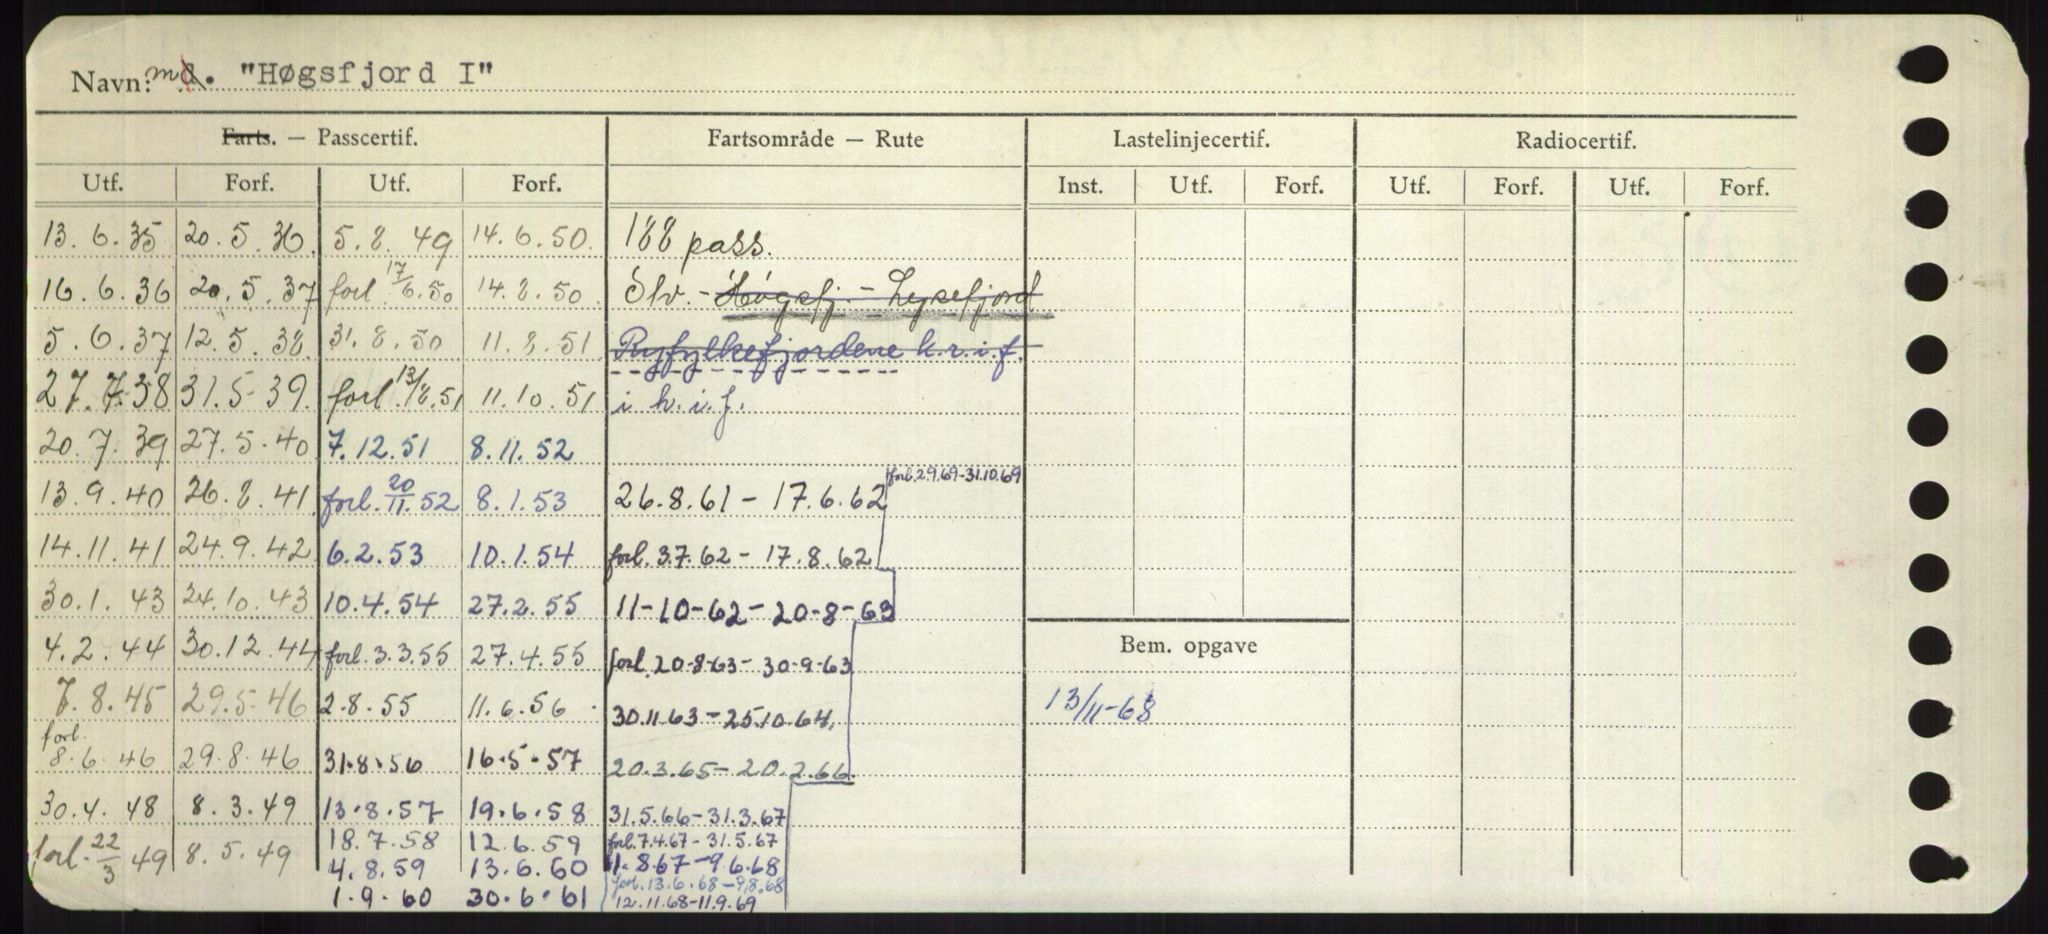 Navn: m/ "Høgsfjord I"
Farts. — Passcertif. Fartsområde — Rute Lastelinjecertif. Radiocertif.
Utf. Forf. Utf. Forf. Inst. Utf. Forf. Utf. Forf. Utf. Forf.
13.6.35 20.5.36. 5.8.49 14.6.50. 188 pass.
16.6.36 20.5.37 forl. 17/6.50 14.8.50. Slv. - Høgsfj. - Lysefjord
5.6.37 12.5.38. 31.8.50 11.8.51 Ryfylkefjordene k.r.i.f.
27.7.38 31.5-39. forl. 13/8.51 11.10.51 i h.i.f.
20.7.39 27.5.40 7.12.51 8.11.52
forl. 2.9.69-31.10.69
13.9.40 26.8.41. forl. 20/11.52 8.1.53 26.8.61 - 17.6.62
14.11.41 24.9.42 6.2.53 10.1.54 forl. 3.7.62 - 17.8.62
30.1.43 24.10.43 10.4.54 27.2.55 11-10-62 - 20-8-63
4.2.44 30.12.44 forl. 3.3.55 27.4.55 forl. 20-8-63 - 30-9-63 Bem. opgave
7.8.45 29.5-46 2.8.55 11.6.56. 30.11.63 - 25.10.64. 13/11-68
forl.
8.6.46 29.8.46 31.8.56 16.5.57 20.3.65 - 20.2.66.
30.4.48 8.3.49 13.8.57 19.6.58 31.5.66 - 31.3.67
forl. 22/3 49 8.5.49 18.7.58 12.6.59 forl. 7.4.67 - 31.5.67
4.8.59 13.6.60 1.8.67 - 9.6.68
forl. 13.6.68 - 9.8.68
1.9.60 30.6.61 12.11.68-11.9.69